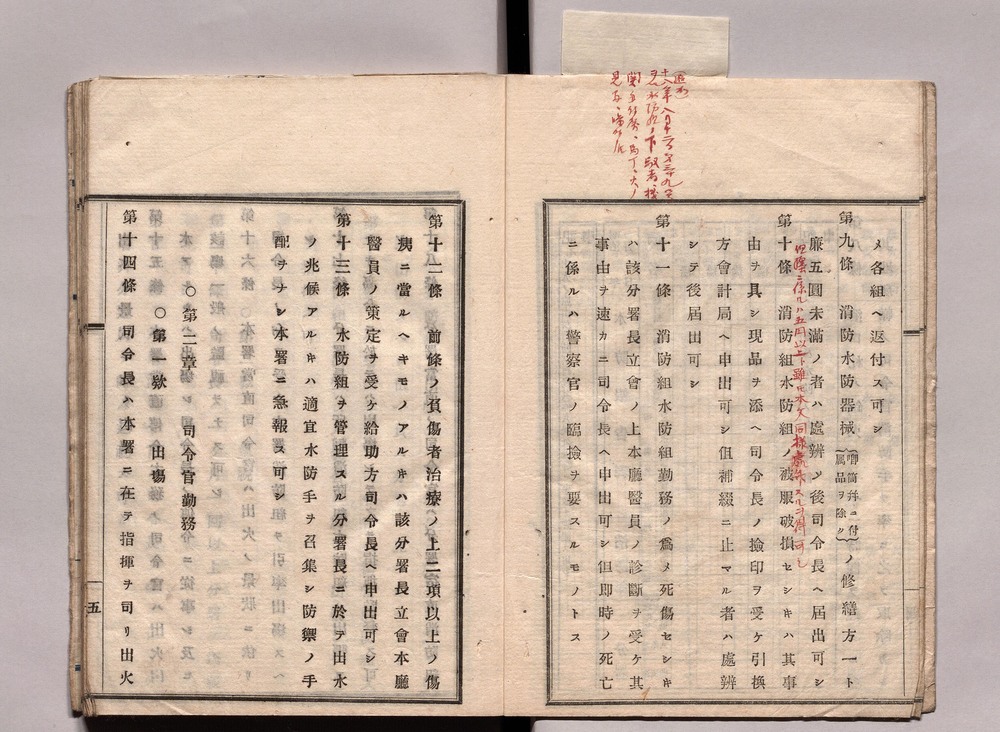 メ各組ヘ返付ス可シ
第九條 消防水防器械(喞筒幷ニ付屬品ヲ除ク)ノ修繕方一ト
廉五圓未滿ノ者ハ處辨シ後司令長ヘ屆出可シ
第十條 消防組水防組ノ被服破損セシキハ其事
由ヲ具シ現品ヲ添ヘ司令長ノ撿印ヲ受ケ引換
方會計局ヘ申出可シ但補綴ニ止マル者ハ處辨
シテ後屆出可シ
第十一條 消防組水防組勤務ノ爲メ死傷セシキ
ハ該分署長立會ノ上本廳醫員ノ診斷ヲ受ケ其
事由ヲ速カニ司令長ヘ申出可シ但卽時ノ死亡
ニ係ルハ警察官ノ臨撿ヲ要スルモノトス
第十二條 前條ノ負傷者治療ノ上二項以上ノ傷
痍ニ當ルヘキモノアルキハ該分署長立會本廳
醫員ノ策定ヲ受ケ給助方司令長ヘ申出可シ
第十三條 水防組ヲ管理スル分署長ニ於テ出水
ノ兆候アルキハ適宜水防手ヲ召集シ防禦ノ手
配ヲナシ本署ニ急報ス可シ
○第二章 司令官勤務
○第一欵 出場
第十四條 司令長ハ本署ニ在テ指揮ヲ司リ出火
五